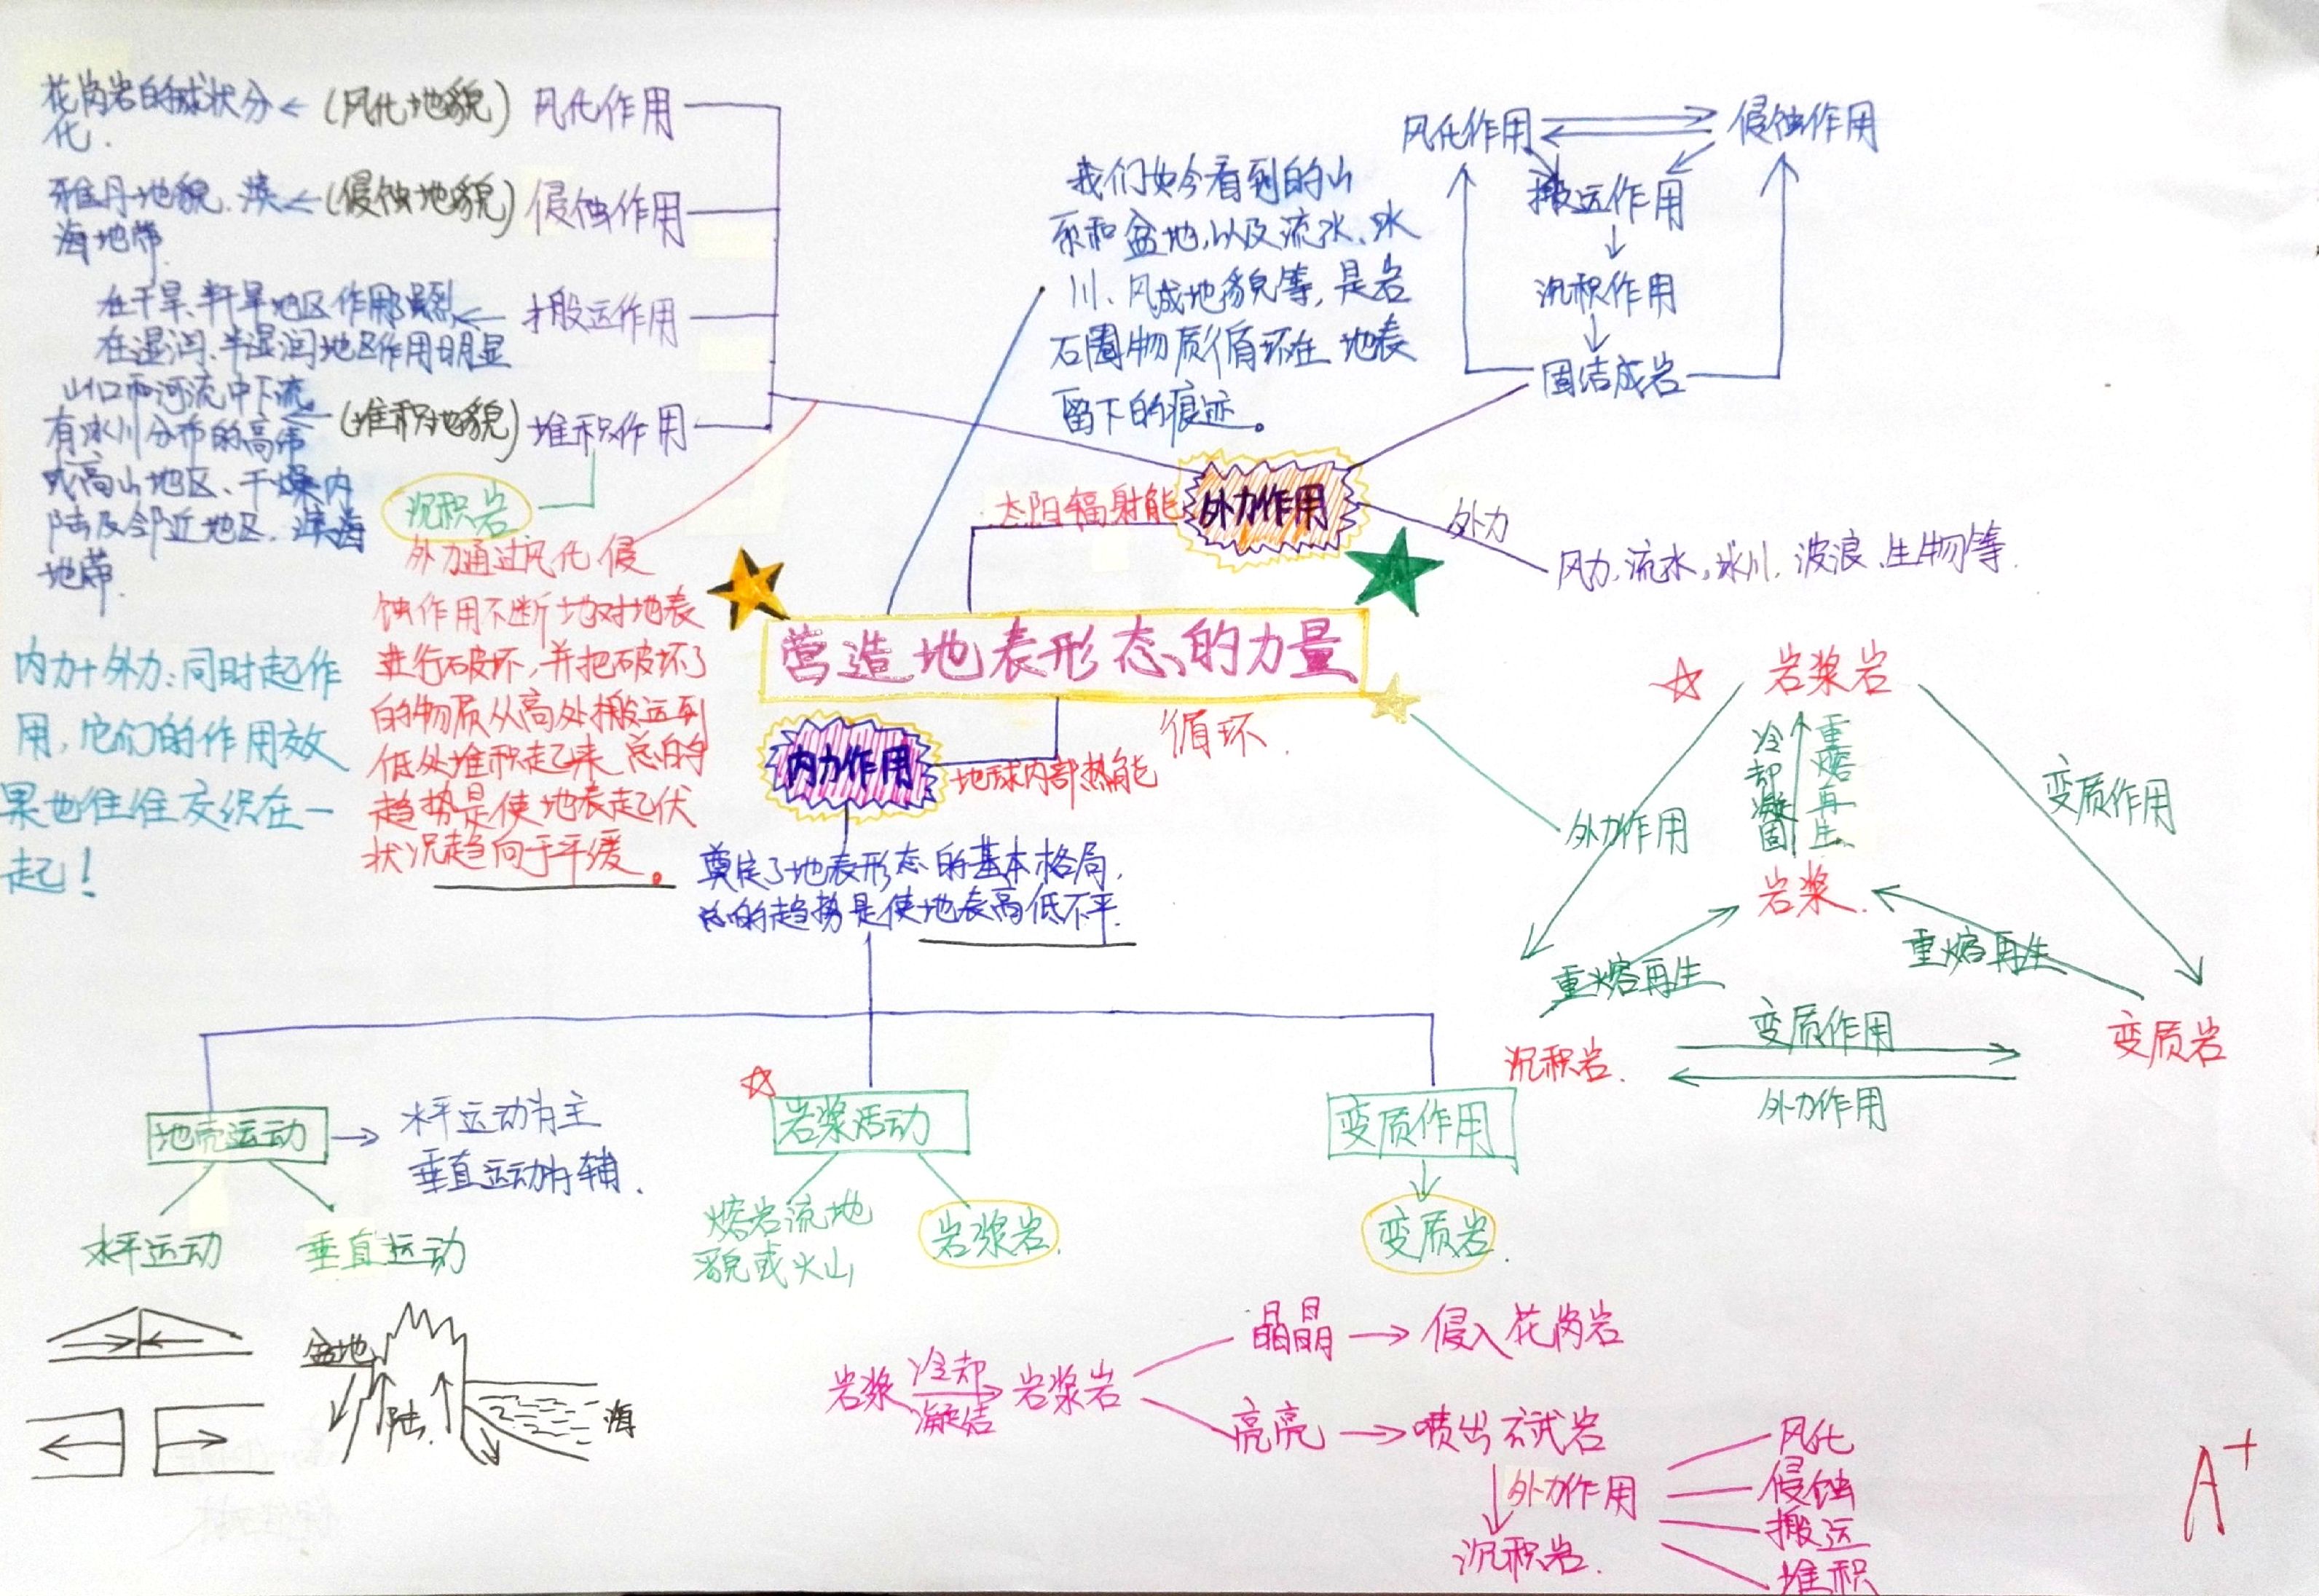 花岗岩的球状分
化.
(风化地貌)
风化作用
雅丹地貌.滨
海地带
(侵蚀地貌)
侵蚀作用
在干旱、半干旱地区作用强烈
在湿润、半湿润地区作用明显
搬运作用
山口和河流中下流
有冰川分布的高纬
或高山地区、干燥内
陆及邻近地区.滨海
地带.
(堆积地貌)
堆积作用
沉积岩
外力通过风化 侵
蚀作用不断地对地表
进行破坏,并把破坏了
的物质从高处搬运到
低处堆积起来 总的
趋势是使地表起伏
状况趋向于平缓。
内力+外力:同时起作
用,它们的作用效
果也往往交织在一
起!
我们如今看到的山
系和盆地,以及流水、冰
川、风成地貌等,是岩
石圈物质循环在地表
留下的痕迹。
风化作用
侵蚀作用
搬运作用
沉积作用
固结成岩
太阳辐射能
外力作用
外力
风力,流水,冰川,波浪、生物等.
营造地表形态的力量
循环.
内力作用
地球内部热能
奠定了地表形态的基本格局,
总的趋势是使地表高低不平.
岩浆岩
冷却凝固
重熔再生
岩浆.
外力作用
变质作用
重熔再生
重熔再生
沉积岩.
变质作用
外力作用
变质岩
地壳运动
水平运动为主
垂直运动为辅.
水平运动
垂直运动
盆地
陆.
海
岩浆活动
熔岩流地
貌或火山
岩浆岩.
变质作用
变质岩.
岩浆
冷却
凝结
岩浆岩
晶晶
侵入花岗岩
亮亮
喷出玄武岩
外力作用
沉积岩.
风化
侵蚀
搬运
堆积
A+